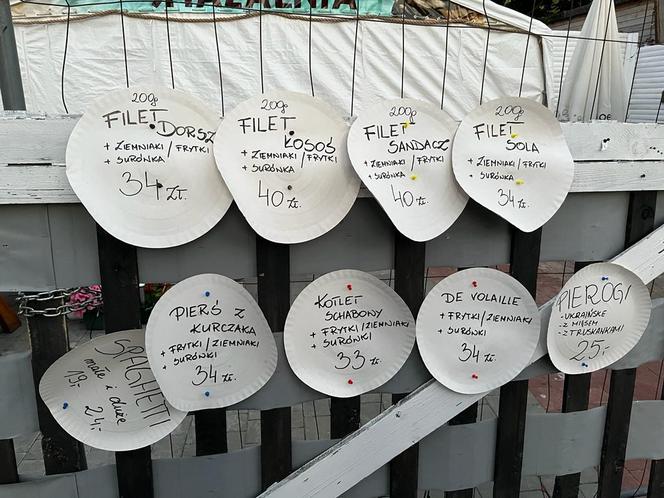 200g
FILET DORSZ
+ ZIEMNIAKI/FRYTKI
+ SURÓWKA
34 zł.
200g
FILET
ŁOSOŚ
+ ZIEMNIAKI/FRYTKI
+ SURÓWKA
40 zł.
200g
FILET
SANDACZ
+ ZIEMNIAKI/FRYTKI
+ SURÓWKA
40 zł.
200g
FILET
SOLA
+ ZIEMNIAKI/FRYTKI
+ SURÓWKA
34 zł.
SPAGHETTI
małe i duże
19,- 24,-
PIERŚ Z
KURCZAKA
+ FRYTKI/ZIEMNIAKI
+ SURÓWKI
34 zł.
KOTLET
SCHABOWY
+ FRYTKI/ZIEMNIAKI
+ SURÓWKI
33 zł.
DE VOLAILLE
+ FRYTKI/ZIEMNIAKI
+ SURÓWKI
34 zł.
PIEROGI
- UKRAIŃSKE
- Z MIĘSEM
- Z TRUSKAWKAMI
25,-